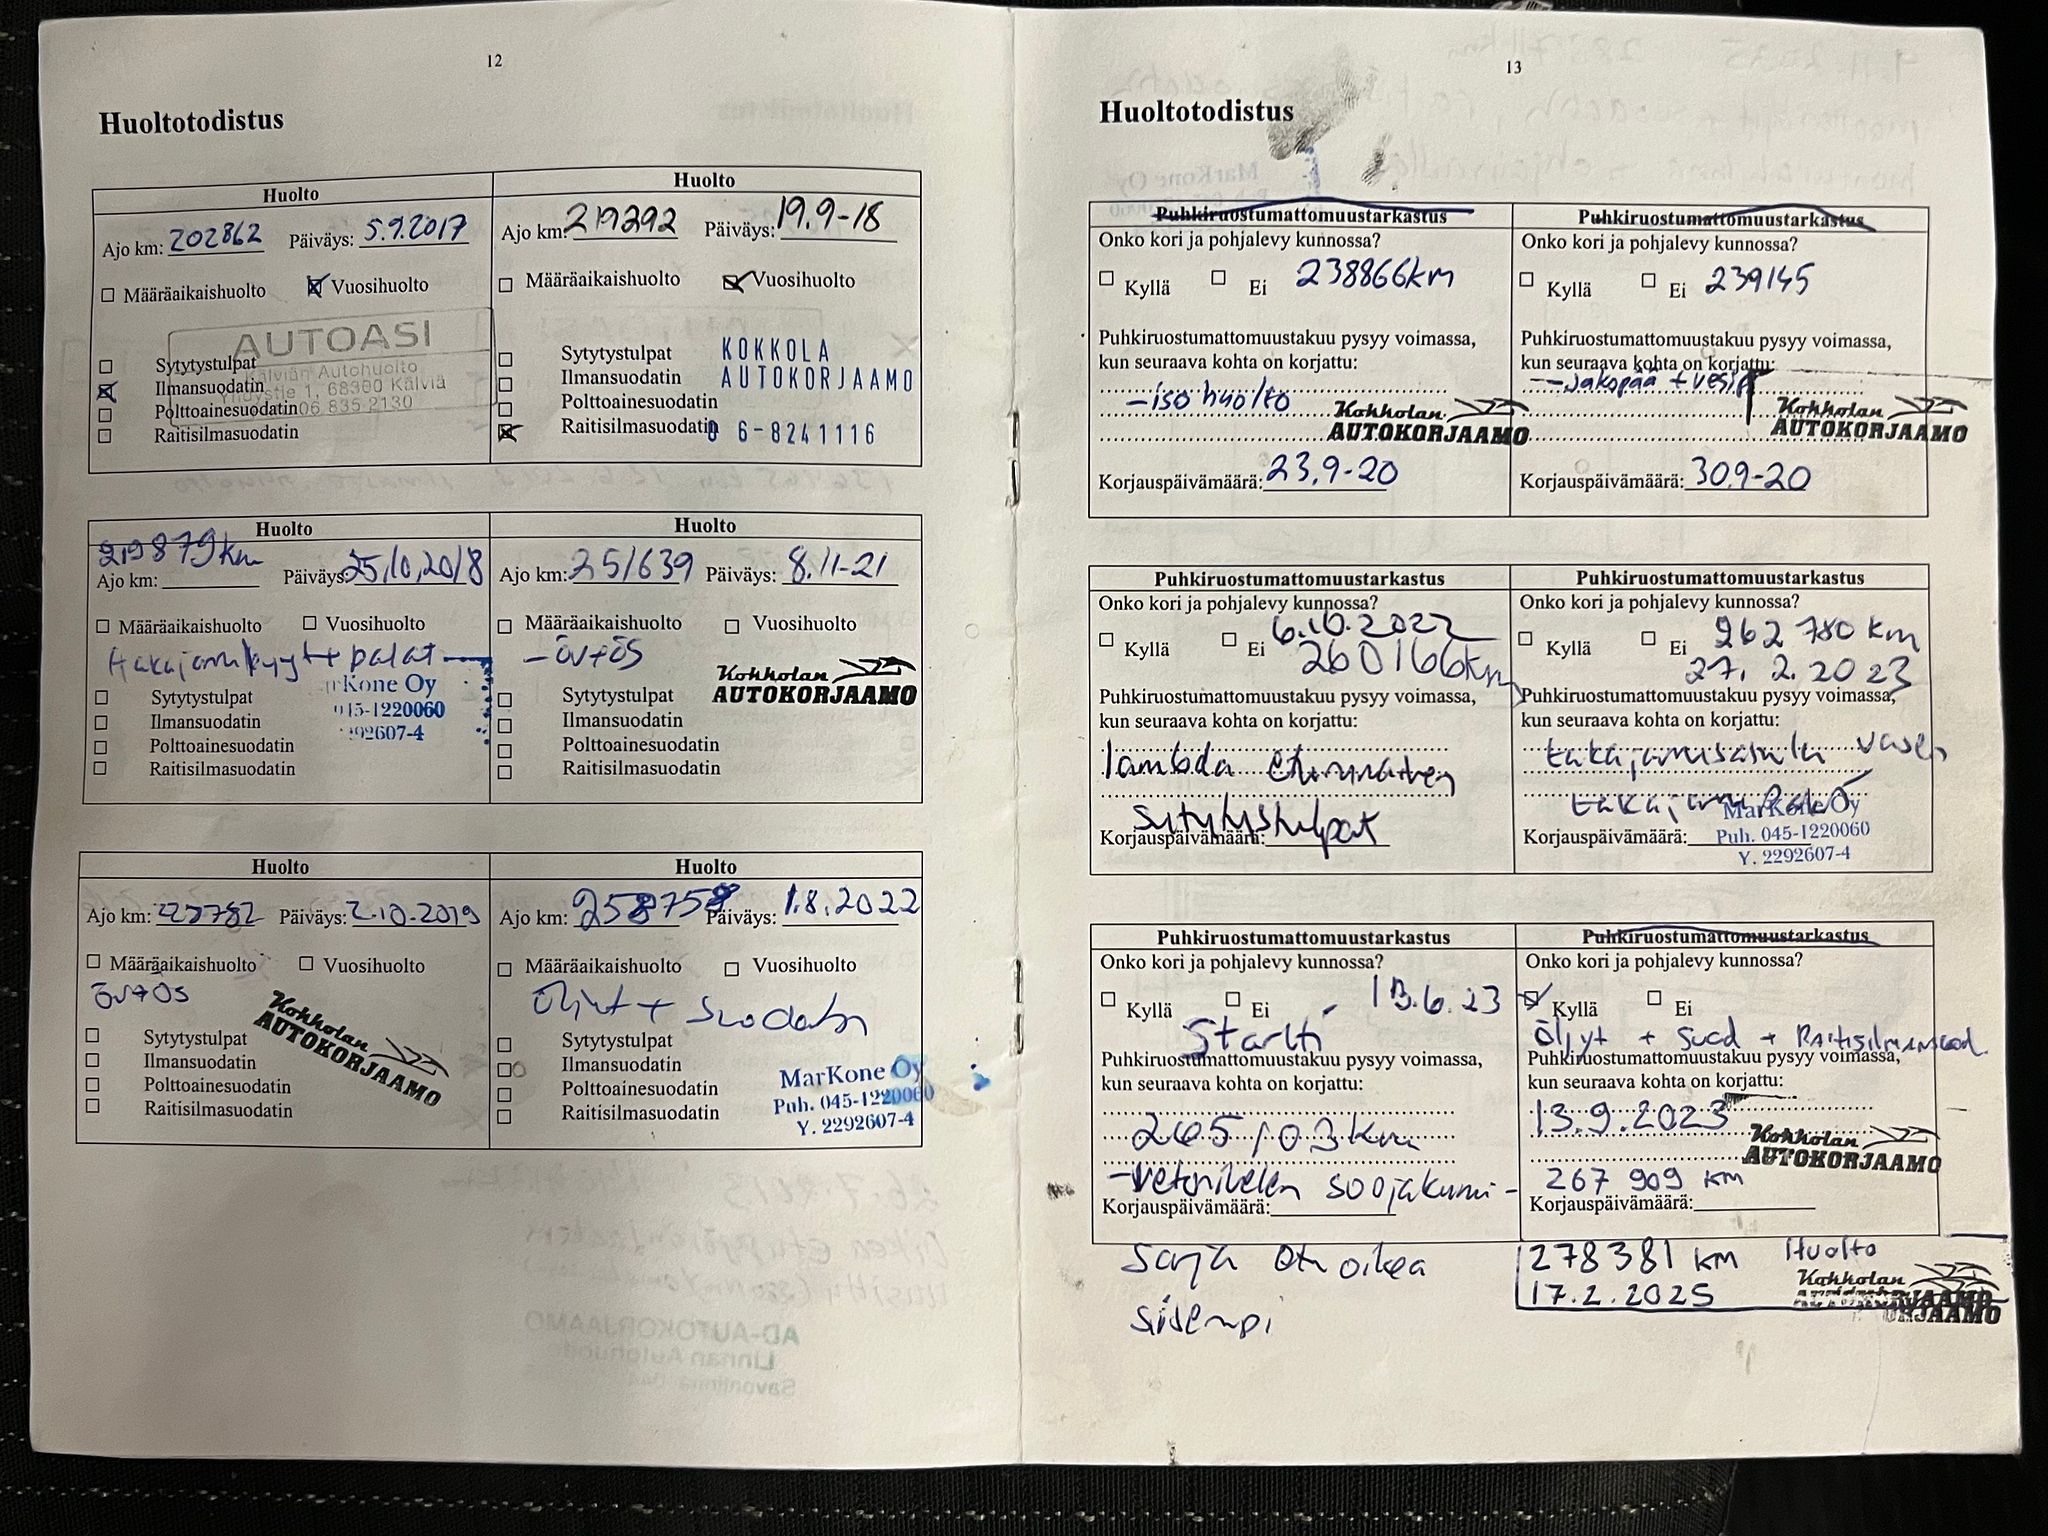 12
Huoltotodistus
Huolto
Ajo km: 202862 Päiväys: 5.9.2017
Määräaikaishuolto Vuosihuolto
AUTOASI
Kälviän Autohuolto
Yhdystie 1, 68300 Kälviä
06 835 2130
Sytytystulpat
Ilmansuodatin
Polttoainesuodatin
Raitisilmasuodatin
Huolto
Ajo km: 219292 Päiväys: 19.9-18
Määräaikaishuolto Vuosihuolto
Sytytystulpat
Ilmansuodatin
Polttoainesuodatin
Raitisilmasuodatin
KOKKOLA
AUTOKORJAAMO
06-8241116
Huolto
219879km
Ajo km: Päiväys: 25.10.2018
Määräaikaishuolto Vuosihuolto
takajarrulevyt + palat
rKone Oy
045-1220060
2292607-4
Sytytystulpat
Ilmansuodatin
Polttoainesuodatin
Raitisilmasuodatin
Huolto
Ajo km: 251639 Päiväys: 8.11-21
Määräaikaishuolto Vuosihuolto
-öv+ös
Kokkolan
AUTOKORJAAMO
Sytytystulpat
Ilmansuodatin
Polttoainesuodatin
Raitisilmasuodatin
Huolto
Ajo km: Päiväys: 2.10.2019
Määräaikaishuolto Vuosihuolto
öv+ös
Kokkolan
AUTOKORJAAMO
Sytytystulpat
Ilmansuodatin
Polttoainesuodatin
Raitisilmasuodatin
Huolto
Ajo km: 258758 Päiväys: 1.8.2022
Määräaikaishuolto Vuosihuolto
Öljyt + suodatin
Sytytystulpat
Ilmansuodatin
Polttoainesuodatin
Raitisilmasuodatin
MarKone Oy
Puh. 045-1220060
Y. 2292607-4
13
Huoltotodistus
Puhkiruostumattomuustarkastus
Onko kori ja pohjalevy kunnossa?
Kyllä Ei 238866km
Puhkiruostumattomuustakuu pysyy voimassa,
kun seuraava kohta on korjattu:
-iso huolto
Kokkolan
AUTOKORJAAMO
Korjauspäivämäärä: 23.9-20
Puhkiruostumattomuustarkastus
Onko kori ja pohjalevy kunnossa?
Kyllä Ei 239145
Puhkiruostumattomuustakuu pysyy voimassa,
kun seuraava kohta on korjattu:
-Jakopää + vesip
Kokkolan
AUTOKORJAAMO
Korjauspäivämäärä: 30.9-20
Puhkiruostumattomuustarkastus
Onko kori ja pohjalevy kunnossa?
6.10.2022
Kyllä Ei 260166km
Puhkiruostumattomuustakuu pysyy voimassa,
kun seuraava kohta on korjattu:
lambda etummainen
sytytystulpat
Korjauspäivämäärä:
Puhkiruostumattomuustarkastus
Onko kori ja pohjalevy kunnossa?
Kyllä Ei 262 780 km
27. 2. 2023
Puhkiruostumattomuustakuu pysyy voimassa,
kun seuraava kohta on korjattu:
takajarrusatula vasen
takajarru
MarKone Oy
Korjauspäivämäärä: Puh. 045-1220060
Y. 2292607-4
Puhkiruostumattomuustarkastus
Onko kori ja pohjalevy kunnossa?
Kyllä Ei 13.6.23
Startti
Puhkiruostumattomuustakuu pysyy voimassa,
kun seuraava kohta on korjattu:
265103km
-vetonivelen suojakumi-
Korjauspäivämäärä:
sarja etu oikea
sisempi
Puhkiruostumattomuustarkastus
Onko kori ja pohjalevy kunnossa?
Kyllä Ei
Öljyt + suod + Raitisilmansuod.
Puhkiruostumattomuustakuu pysyy voimassa,
kun seuraava kohta on korjattu:
13.9.2023
Kokkolan
AUTOKORJAAMO
267 909 km
Korjauspäivämäärä:
278381 km Huolto
17.2.2025
Kokkolan
AUTOKORJAAMO